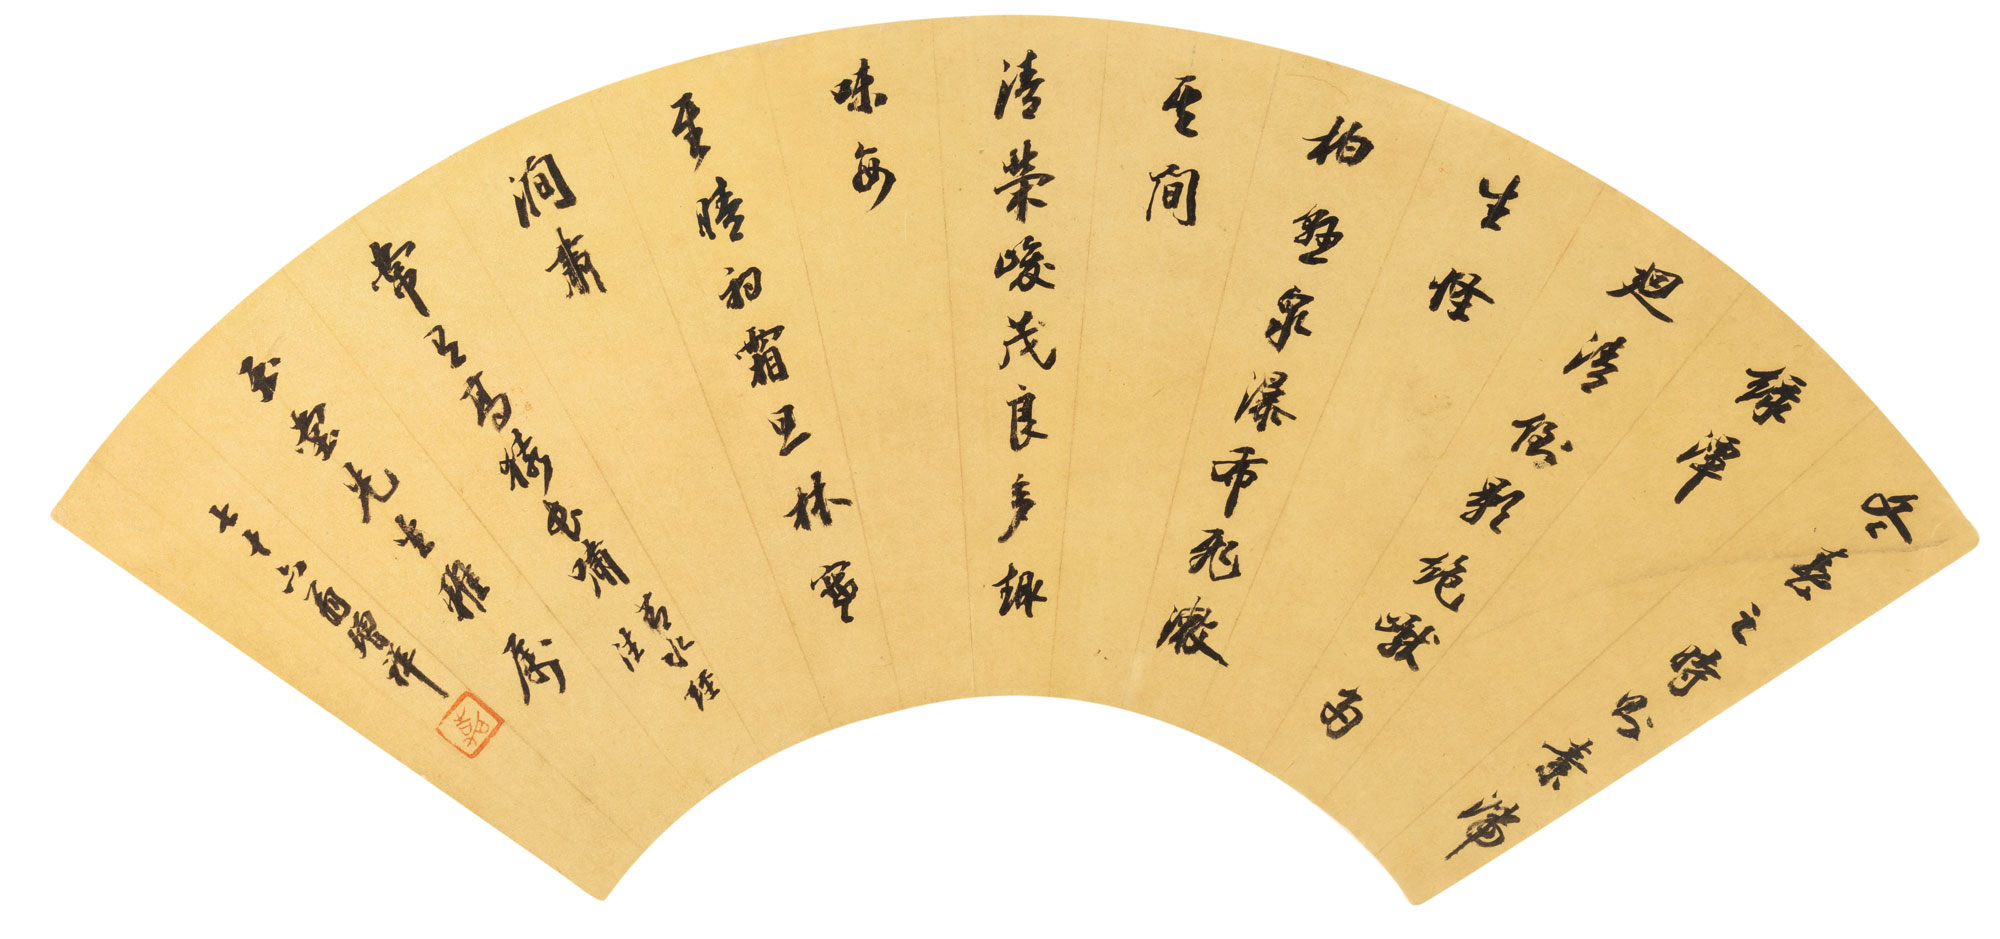 冬春之時則素湍
綠潭
迴清倒影絕巘多
生怪
柏懸泉瀑布飛漱
其間
清榮峻茂良多趣
味每
至晴初霜旦林寒
澗肅
常有高猿長嘯
水經
注
玉堂先生雅屬
七十六增祥